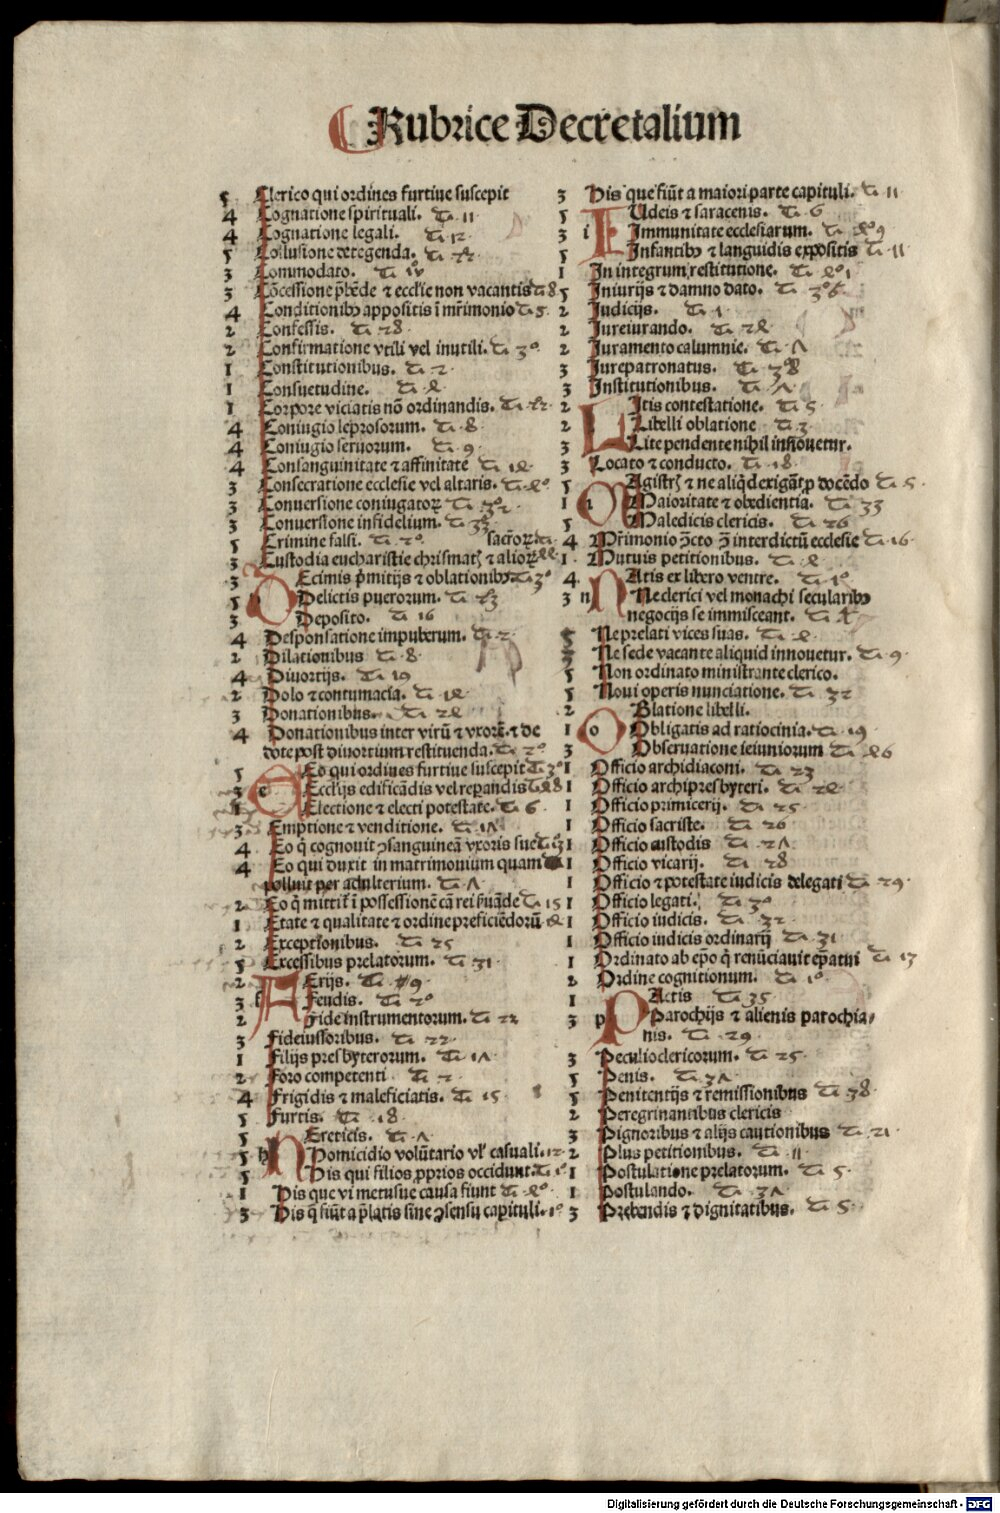 Rubrice Decretalium
5 Clerico qui ordines furtiue suscepit
4 Cognatione spirituali. 11
4 Cognatione legali. 12
5 Collusione detegenda.
3 Commodato.
3 Cōcessione p̄bēde ⁊ ecclie non vacantis 8
4 Conditionibꝰ appositis ī mr̄imonio 5
2 Confessis. 28
2 Confirmatione vtili vel inutili. 30
1 Constitutionibus. 2
1 Consuetudine.
1 Corpore viciatis nō ordinandis.
4 Coniugio leprosorum. 8
4 Coniugio seruorum. 9
4 Consanguinitate ⁊ affinitate
3 Consecratione ecclesie vel altaris.
3 Conuersione coniugatoꝝ
3 Conuersione infidelium. 33
5 Crimine falsi. 20 sacroꝝ
3 Custodia eucharistie chrismatꝭ ⁊ alioꝝ
3 DEcimis p̄mitijs ⁊ oblationibꝰ 30
5 Delictis puerorum.
3 Deposito. 16
4 Desponsatione impuberum. 2
2 Dilationibus 8
4 Diuortijs. 19
2 Dolo ⁊ contumacia.
3 Donationibus.
4 Donationibus inter virū ⁊ vxorē. ⁊ de
dote post diuortium restituenda. 20
5 EEo qui ordines furtiue suscepit 30
3 e Ecclijs edificādis vel repandis
1 Electione ⁊ electi potestate. 6
3 Emptione ⁊ venditione.
4 Eo q̄ cognouit ɔsanguineā vxoris sue
4 Eo qui duxit in matrimonium quam
polluit per adulterium.
2 Eo q̄ mittit̄ ī possessionē cā rei ẜuāde 15
1 Etate ⁊ qualitate ⁊ ordine preficiēdorū
2 Exceptionibus. 25
5 Excessibus prelatorum. 31
2 FErijs. 9
3 f Feudis. 20
2 Fide instrumentorum. 22
3 Fideiussoribus. 22
1 Filijs presbyterorum.
2 Foro competenti 2
4 Frigidis ⁊ maleficiatis. 15
5 Furtis. 18
5 HEreticis.
5 h Homicidio volūtario vl' casuali. 12
5 His qui filios ꝓprios occidunt.
1 His que vi metusue causa fiunt
3 His q̄ fiūt a p̄latis sine ɔsensu capituli.
3 His que fiūt a maiori parte capituli. 11
5 IUdeis ⁊ saracenis. 6
3 i Immunitate ecclesiarum.
5 Infantibꝰ ⁊ languidis expositis 11
1 In integrum restitutione.
5 Iniurijs ⁊ damno dato. 36
2 Iudicijs. 1
2 Iureiurando.
2 Iuramento calumnie.
3 Iurepatronatus. 38
3 Institutionibus.
2 LItis contestatione. 5
2 Libelli oblatione 3
3 Lite pendente nihil innouetur.
3 Locato ⁊ conducto. 18
5 MAgistrꝭ ⁊ ne aliqd exigāt̄ ꝓ docēdo 5
1 Maioritate ⁊ obedientia. 33
5 Maledicis clericis. 26
4 Mr̄imonio ɔ̄cto ɔ̄ interdictū ecclesie 16
1 Mutuis petitionibus.
4 NAtis ex libero ventre. 10
3 n Ne clerici vel monachi secularibꝰ
negocijs se immisceant.
5 Ne prelati vices suas.
3 Ne sede vacante aliquid innouetur. 9
5 Non ordinato ministrante clerico.
5 Noui operis nunciatione. 32
2 OBlatione libelli.
1 o Obligatis ad ratiocinia. 19
3 Obseruatione ieiuniorum
1 Officio archidiaconi. 23
1 Officio archipresbyteri.
1 Officio primicerij. 25
1 Officio sacriste. 26
1 Officio custodis
1 Officio vicarij. 28
1 Officio ⁊ potestate iudicis delegati 29
1 Officio legati. 30
1 Officio iudicis. 32
1 Officio iudicis ordinarij 31
1 Ordinato ab epo q̄ renūciauit epatui 13
2 Ordine cognitionum. 10
1 PActis 35
3 p Parochijs ⁊ alienis parochia
nis. 29
3 Peculio clericorum. 25
5 Penis.
5 Penitentijs ⁊ remissionibus 38
2 Peregrinantibus clericis
3 Pignoribus ⁊ alijs cautionibus 21
2 Plus petitionibus. 11
1 Postulatione prelatorum. 5
1 Postulando.
3 Prebendis ⁊ dignitatibus. 5
Digitalisierung gefördert durch die Deutsche Forschungsgemeinschaft - DFG